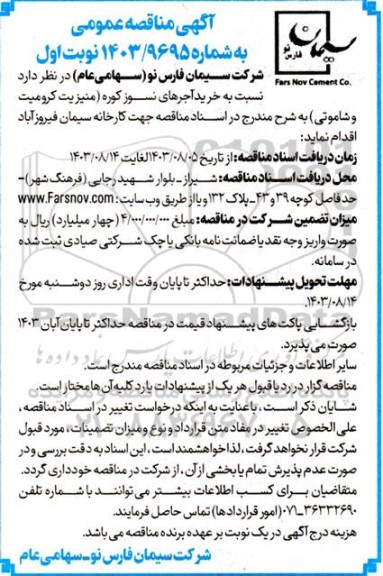 آگهی مناقصه عمومی
به شماره ۱۴۰۳/۹۶۹۵ نوبت اول
سیمان
فارس نو
Fars Nov Cement Co.
شرکت سیمان فارس نو (سهامی عام) در نظر دارد
نسبت به خرید آجرهای نسوز کوره (منیزیت کرومیت
و شاموتی) به شرح مندرج در اسناد مناقصه جهت کارخانه سیمان فیروزآباد
اقدام نماید:
زمان دریافت اسناد مناقصه: از تاریخ ۱۴۰۳/۰۸/۰۵ لغایت ۱۴۰۳/۰۸/۱۴
محل دریافت اسناد مناقصه: شیراز - بلوار شهید رجایی (فرهنگ شهر) -
حد فاصل کوچه ۳۹ و ۴۳ - پلاک ۱۳۲ و یا از طریق وب سایت: www.Farsnov.com
میزان تضمین شرکت در مناقصه: مبلغ ۴/۰۰۰/۰۰۰/۰۰۰ (چهار میلیارد) ریال به
صورت واریز وجه نقد یا ضمانت نامه بانکی یا چک شرکتی صیادی ثبت شده
در سامانه.
مهلت تحویل پیشنهادات: حداکثر تا پایان وقت اداری روز دوشنبه مورخ
۱۴۰۳/۰۸/۱۴.
بازگشایی پاکت های پیشنهاد قیمت در مناقصه حداکثر تا پایان آبان ۱۴۰۳
صورت می پذیرد.
سایر اطلاعات و جزئیات مربوطه در اسناد مناقصه مندرج است.
مناقصه گزار در رد یا قبول هر یک از پیشنهادات یا رد کلیه آن ها مختار است.
شایان ذکر است، با عنایت به اینکه درخواست تغییر در اسناد مناقصه،
علی الخصوص تغییر در مفاد متن قرارداد و نوع و میزان تضمینات، مورد قبول
شرکت قرار نخواهد گرفت، لذا خواهشمند است، این اسناد به دقت بررسی و در
صورت عدم پذیرش تمام یا بخشی از آن، از شرکت در مناقصه خودداری گردد.
متقاضیان برای کسب اطلاعات بیشتر می توانند با شماره تلفن
۳۶۳۳۲۶۹۰-۰۷۱ (امور قراردادها) تماس حاصل فرمایند.
هزینه درج آگهی در یک نوبت بر عهده برنده مناقصه می باشد.
شرکت سیمان فارس نو - سهامی عام